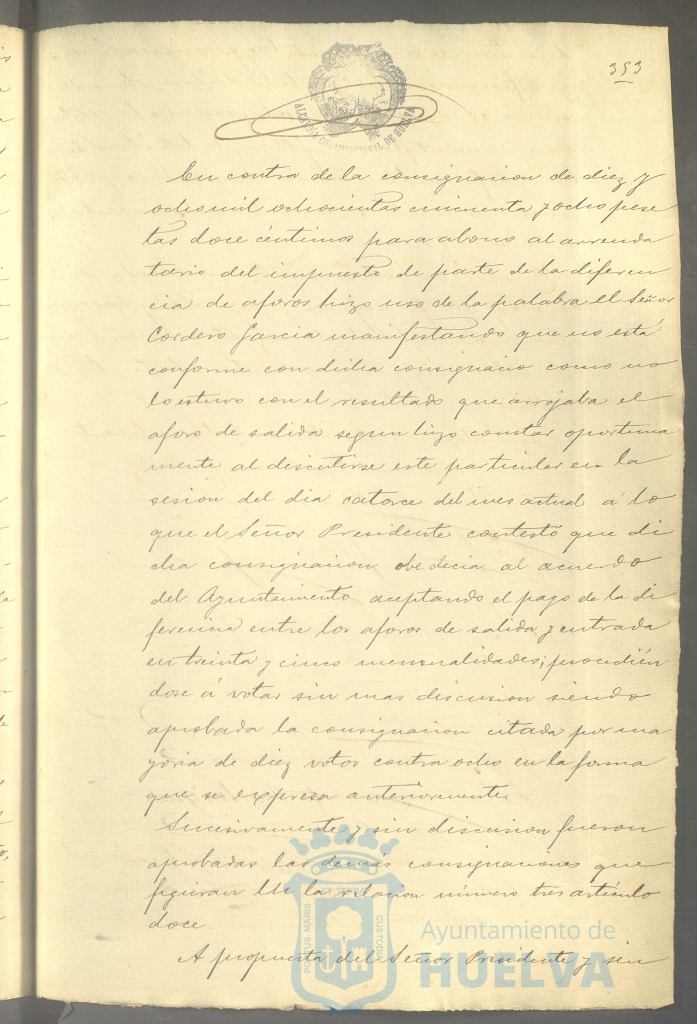 353
ALCALDIA CONSTITUCIONAL DE HUELVA
En contra de la consignacion de diez y
ocho mil ochocientas cincuenta y ocho pese
tas doce céntimos para abono al arrenda
tario del impuesto de parte de la diferen
cia de aforos hizo uso de la palabra el Señor
Cordero Garcia manifestando que no está
conforme con dicha consignacio como no
lo estuvo con el resultado que arrojaba el
aforo de salida segun hizo constar oportuna
mente al discutirse este particular en la
sesion del dia catorce del mes actual á lo
que el Señor Presidente contestó que di
cha consignacion obedecia al acuerdo
del Ayuntamiento aceptando el pago de la di
ferencia entre los aforos de salida y entrada
en treinta y cinco mensualidades; procedién
dose á votar sin mas discusion siendo
aprobada la consignacion citada por ma
yoria de diez votos contra ocho en la forma
que se expresa anteriormente.
Sucesivamente y sin discusion fueron
aprobadas las demás consignaciones que
figuran en la relacion número tres artículo
doce.
A propuesta del Señor Presidente y sin
PORTUS MARIS ET TERRE CUSTODIA
Ayuntamiento de
HUELVA